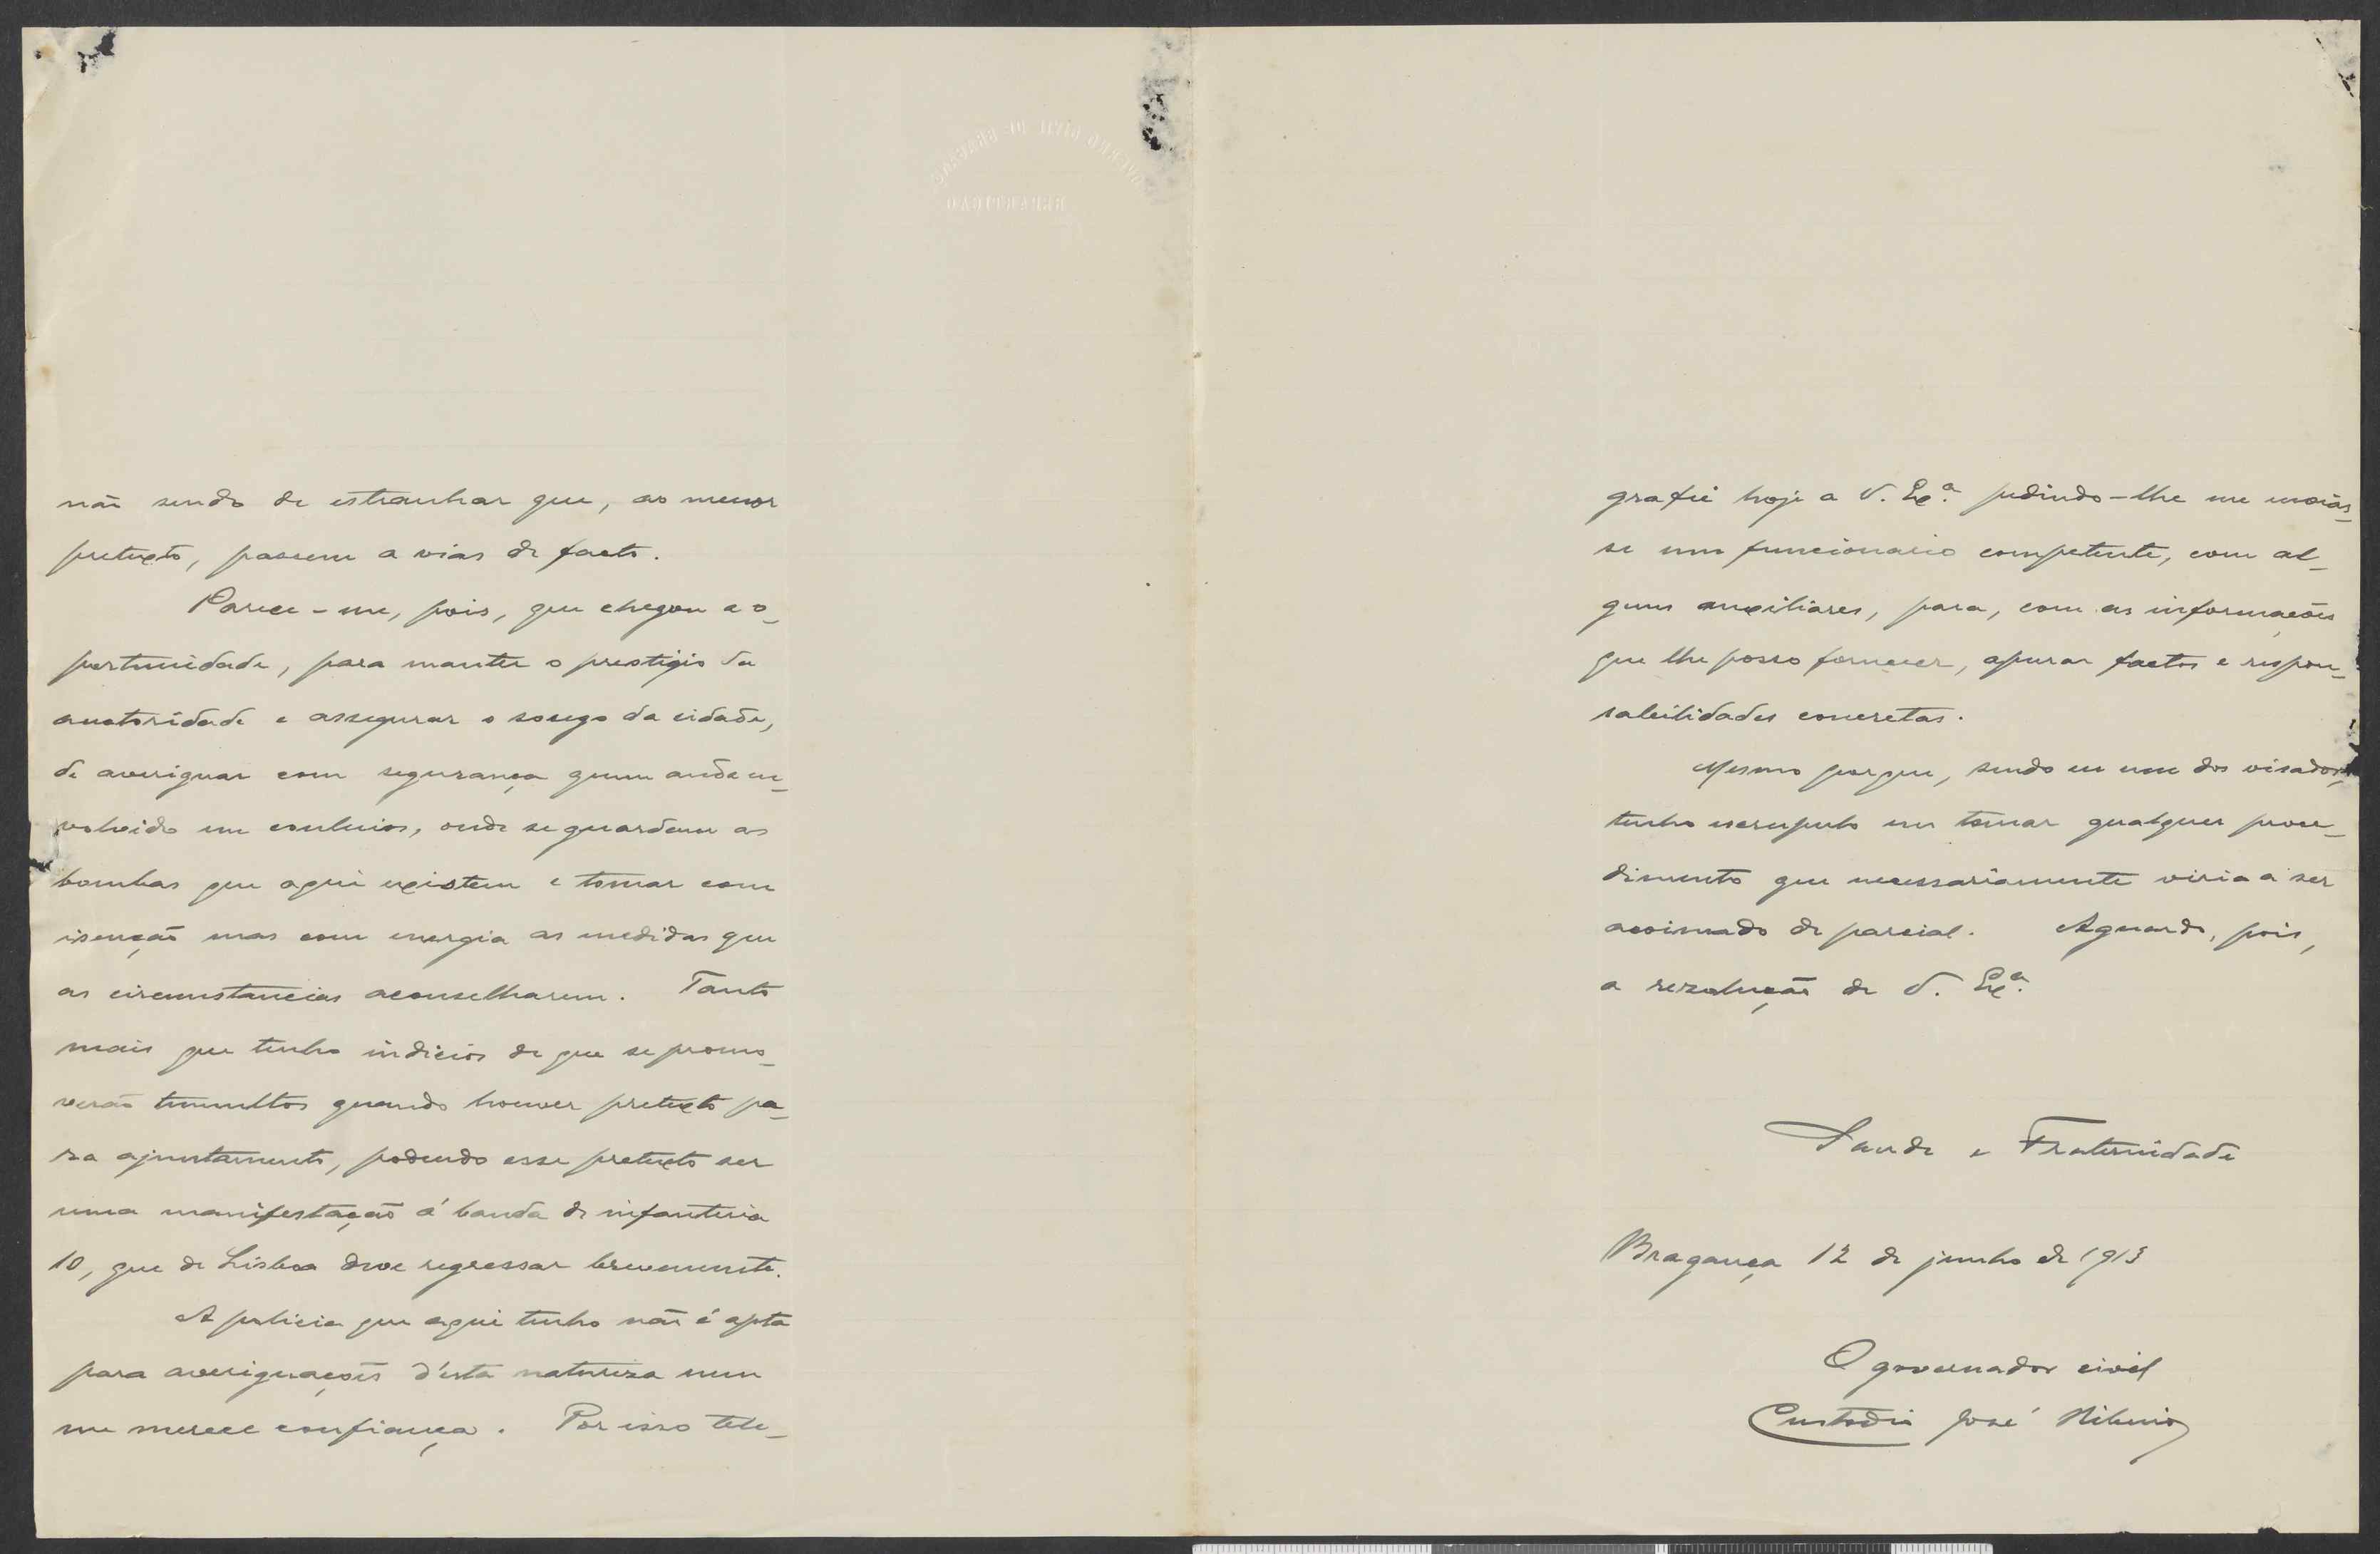 não sendo de estranhar que, ao menor
pretexto, passem a vias de facto.
Parece-me, pois, que chegou a o-
portunidade, para manter o prestigio da
auctoridade e assegurar o socego da cidade,
de averiguar com segurança quem anda en-
volvido em conluios, onde se guardam as
bombas que aqui existem e tomar com
isenção mas com energia as medidas que
as circumstancias aconselharem. Tanto
mais que tenho indicios de que se promo-
verão tumultos quando houver pretexto pa-
ra ajuntamento, podendo esse pretexto ser
uma manifestação á banda de infanteria
10, que de Lisboa deve regressar brevemente.
A policia que aqui tenho não é apta
para averiguações d'esta natureza nem
me merece confiança. Por isso tele-
grafei hoje a V. Exª. pedindo-lhe me
se um funcionario competente, com al-
guns auxiliares, para, com as informações
que lhe posso fornecer, apurar factos e respon-
sabilidades concretas.
Mesmo porque, sendo eu um dos visados,
tenho escrupulo em tomar qualquer proce-
dimento que necessariamente viria a ser
acoimado de parcial. Aguardo, pois,
a rezolução de V. Exª.
Saude e Fraternidade
Bragança 12 de junho de 1913
O governador civil
Custodio José Ribeiro